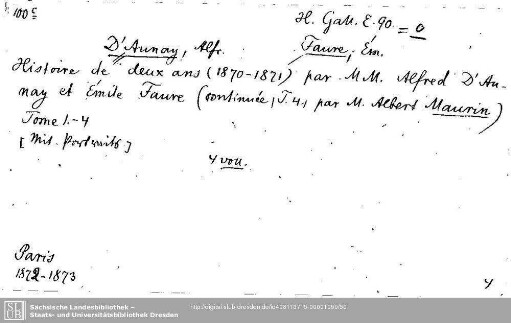 100 c
H. Gall. E. 90. = 0
D'Aunay, Alfr. Faure, Ém.
Histoire de deux ans (1870-1871) par MM. Alfred D'Au-
nay et Émile Faure (continuée, T. 4, par M. Albert Maurin)
Tome 1.-4
[Mit. Portraits.]
4 voll.
Paris
1872-1873
4
Sächsische Landesbibliothek –
Staats- und Universitätsbibliothek Dresden